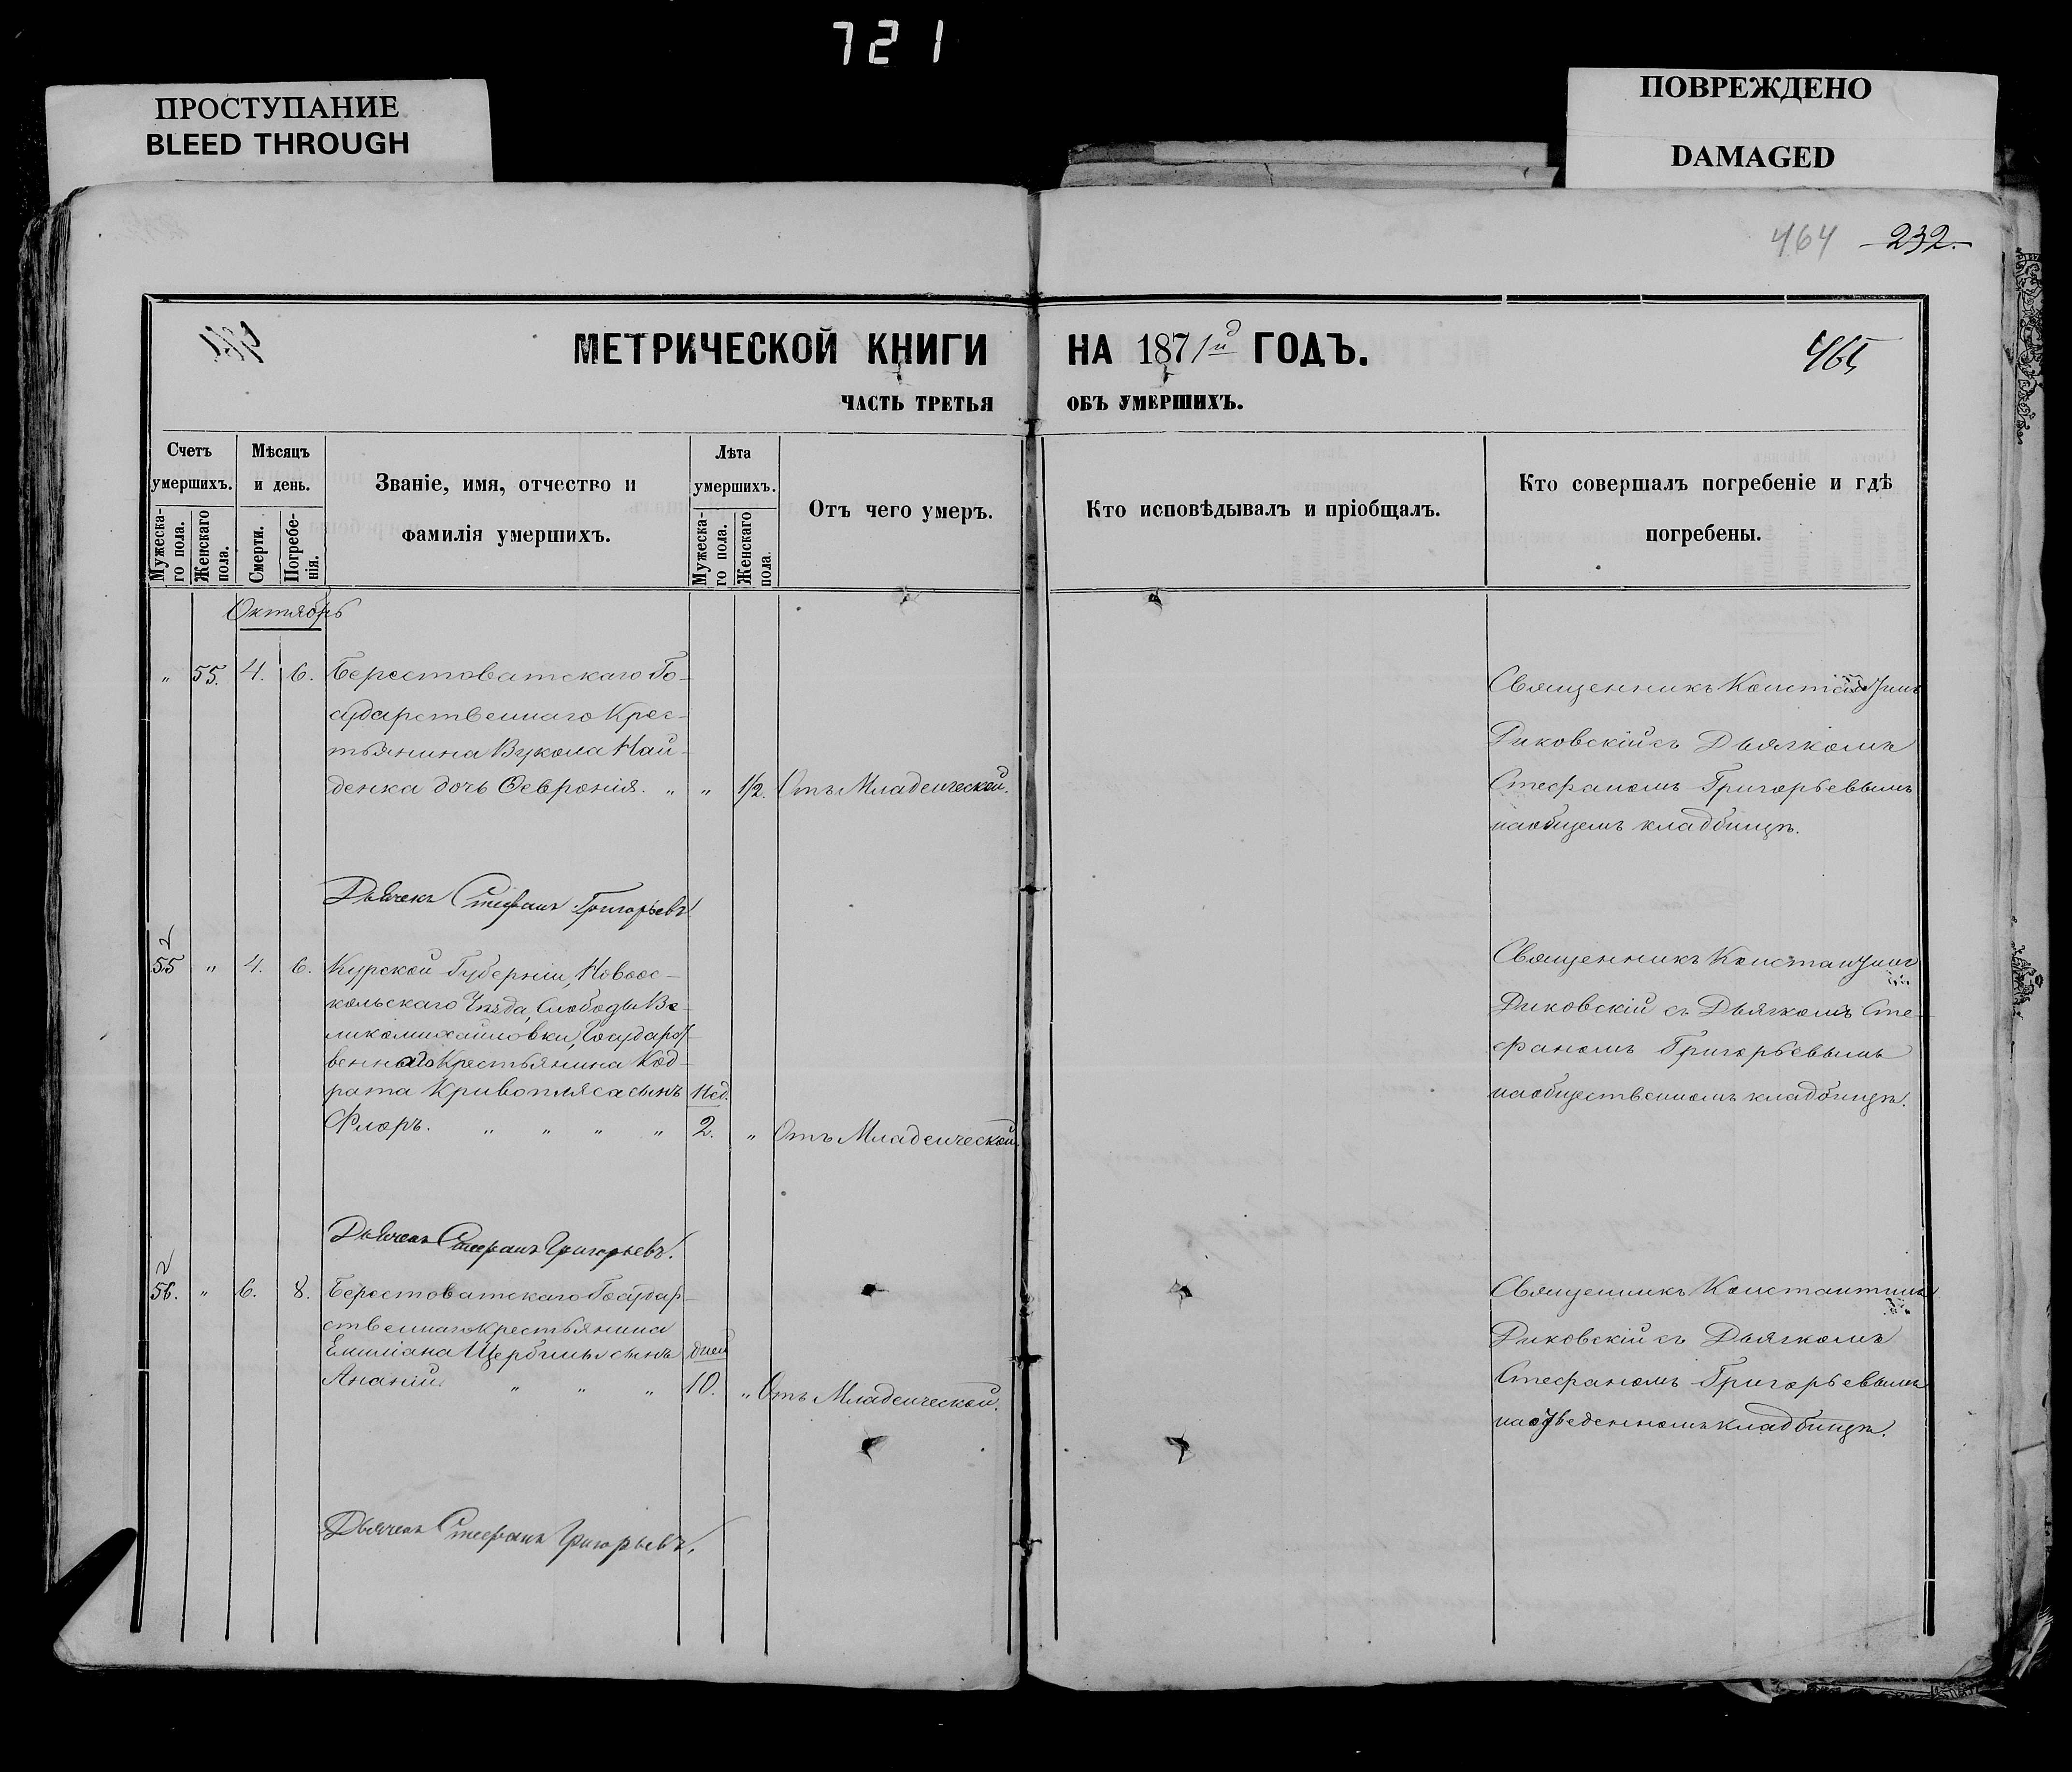 721
ПРОСТУПАНИЕ
BLEED THROUGH
ПОВРЕЖДЕНО
DAMAGED
464 232.
МЕТРИЧЕСКОЙ КНИГИ НА 1871й ГОДЪ.
465
ЧАСТЬ ТРЕТЬЯ ОБЪ УМЕРШИХЪ.
Счетъ умершихъ.
Мужескаго пола.
Женскаго пола.
Мѣсяцъ и день.
Смерти.
Погребенія.
Званіе, имя, отчество и
фамилія умершихъ.
Лѣта умершихъ.
Мужескаго пола.
Женскаго пола.
Отъ чего умеръ.
Кто исповѣдывалъ и пріобщалъ.
Кто совершалъ погребеніе и гдѣ
погребены.
Октябрь
" 55. 4. 6. Берестоватскаго Го-
сударственнаго Крес-
тьянина Вукола Най-
денка дочь Ѳевронія. " " 1/2. Отъ Младенческой.
Священникъ Константинъ
Диковскій съ Дьячкомъ
Стефаномъ Григорьевымъ
на общемъ кладбищѣ.
Дьячекъ Стефанъ Григорьевъ.
2
55 " 4. 6. Курской Губерніи, Новоос-
кольскаго Уѣзда, Слободы Ве-
ликомихайловки, Государст-
веннаго Крестьянина Код-
рата Кривопляса сынъ Нед.
Флоръ. " " " " 2. " Отъ Младенческой.
Священникъ Константинъ
Диковскій съ Дьячкомъ Сте-
фаномъ Григорьевымъ
на общественномъ кладбищѣ.
Дьячекъ Стефанъ Григорьевъ.
2
56. " 6. 8. Берестоватскаго Государ-
ственнаго Крестьянина
Емиліана Щербины сынъ дней
Ананій " " " 10. " Отъ Младенческой.
Священникъ Константинъ
Диковскій съ Дьячкомъ
Стефаномъ Григорьевымъ
на отведенномъ кладбищѣ.
Дьячекъ Стефанъ Григорьевъ.